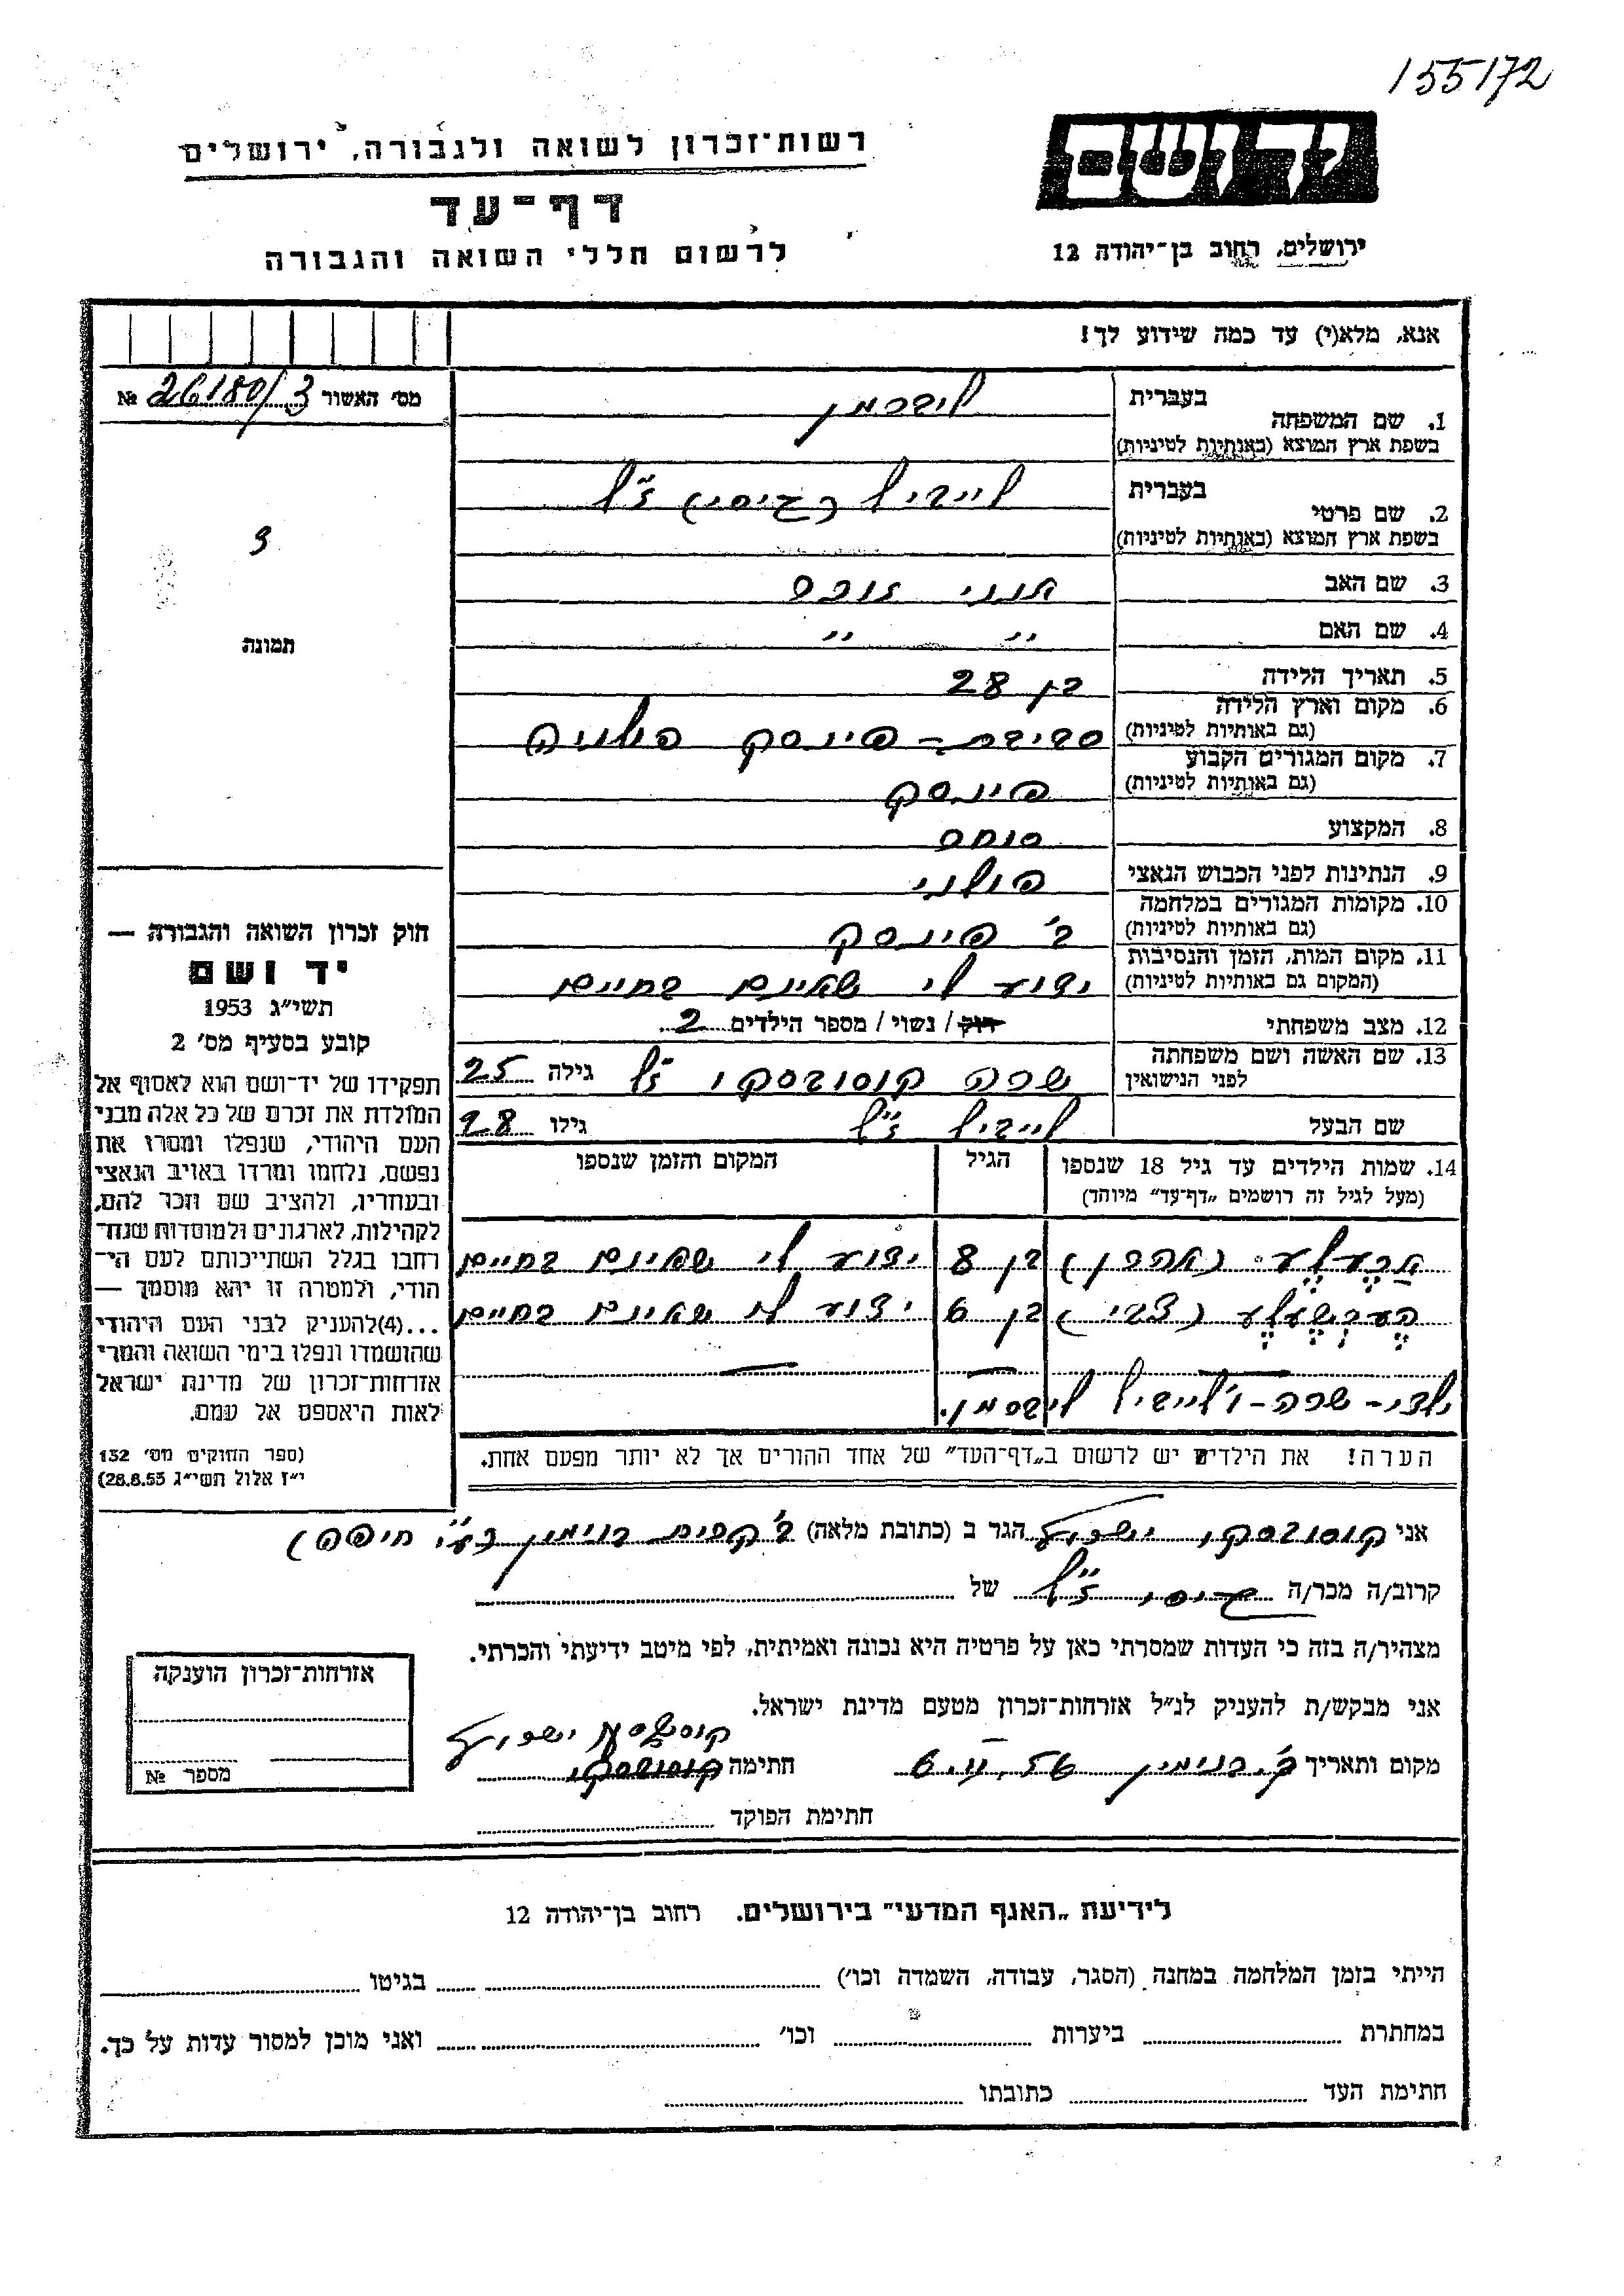 155172
יד ושם
רשות־זכרון לשואה ולגבורה, ירושלים
דף־עד
לרשום חללי השואה והגבורה
ירושלים, רחוב בן־יהודה 12
אנא, מלא(י) עד כמה שידוע לך!
מס׳ האשור 26180/3 №
תמונה
1. שם המשפחה בעברית ליברמן
בשפת ארץ המוצא (באותיות לטיניות)
2. שם פרטי בעברית לייביל (גיסי) ז״ל
בשפת ארץ המוצא (באותיות לטיניות)
3. שם האב אינני זוכר
4. שם האם ״ ״
5. תאריך הלידה בן 28
6. מקום וארץ הלידה (גם באותיות לטיניות) סביבת – פינסק פולניה
7. מקום המגורים הקבוע (גם באותיות לטיניות) פינסק
8. המקצוע סוחר
9. הנתינות לפני הכבוש הנאצי פולני
10. מקומות המגורים במלחמה (גם באותיות לטיניות) ב׳ פינסק
11. מקום המות, הזמן והנסיבות (המקום גם באותיות לטיניות) ידוע לי שאינם בחיים
12. מצב משפחתי רווק / נשוי / מספר הילדים 2
13. שם האשה ושם משפחתה לפני הנישואין שרה קוסובסקי ז״ל גילה 25
שם הבעל לייביל ז״ל גילו 28
14. שמות הילדים עד גיל 18 שנספו (מעל לגיל זה רושמים „דף־עד״ מיוחד) הגיל המקום והזמן שנספו
(אהרן) בן 8 ידוע לי שאינם בחיים
הערשעלע (צבי) בן 6 ידוע לי שאינם בחיים
ילדי – שרה – ו׳לייביל ליברמן.
הערה! את הילדים יש לרשום ב„דף־העד״ של אחד ההורים אך לא יותר מפעם אחת.
חוק זכרון השואה והגבורה —
יד ושם
תשי״ג 1953
קובע בסעיף מס׳ 2
תפקידו של יד־ושם הוא לאסוף אל
המולדת את זכרם של כל אלה מבני
העם היהודי, שנפלו ומסרו את
נפשם, נלחמו ומרדו באויב הנאצי
ובעוזריו, ולהציב שם וזכר להם,
לקהילות, לארגונים ולמוסדות שנח־
רבו בגלל השתייכותם לעם הי־
הודי, ולמטרה זו יהא מוסמך —
...(4)להעניק לבני העם היהודי
שהושמדו ונפלו בימי השואה והמרי
אזרחות־זכרון של מדינת ישראל
לאות היאספם אל עמם.
(ספר החוקים מס׳ 132
י״ז אלול תשי״ג 28.8.53)
אני קוסובסקי ישראל הגר ב (כתובת מלאה) ב׳ קרית בנימין (ע״י חיפה)
קרוב/ה מכר/ה גיסי ז״ל של
מצהיר/ה בזה כי העדות שמסרתי כאן על פרטיה היא נכונה ואמיתית, לפי מיטב ידיעתי והכרתי.
אני מבקש/ת להעניק לנ״ל אזרחות־זכרון מטעם מדינת ישראל.
מקום ותאריך ק. בנימין 6.II.56 חתימה קוסובסקי ישראל
קוסובסקי
חתימת הפוקד
אזרחות־זכרון הוענקה
מספר №
לידיעת „האגף המדעי״ בירושלים. רחוב בן־יהודה 12
הייתי בזמן המלחמה במחנה (הסגר, עבודה, השמדה וכו׳) בגיטו
במחתרת ביערות וכו׳ ואני מוכן למסור עדות על כך.
חתימת העד כתובתו